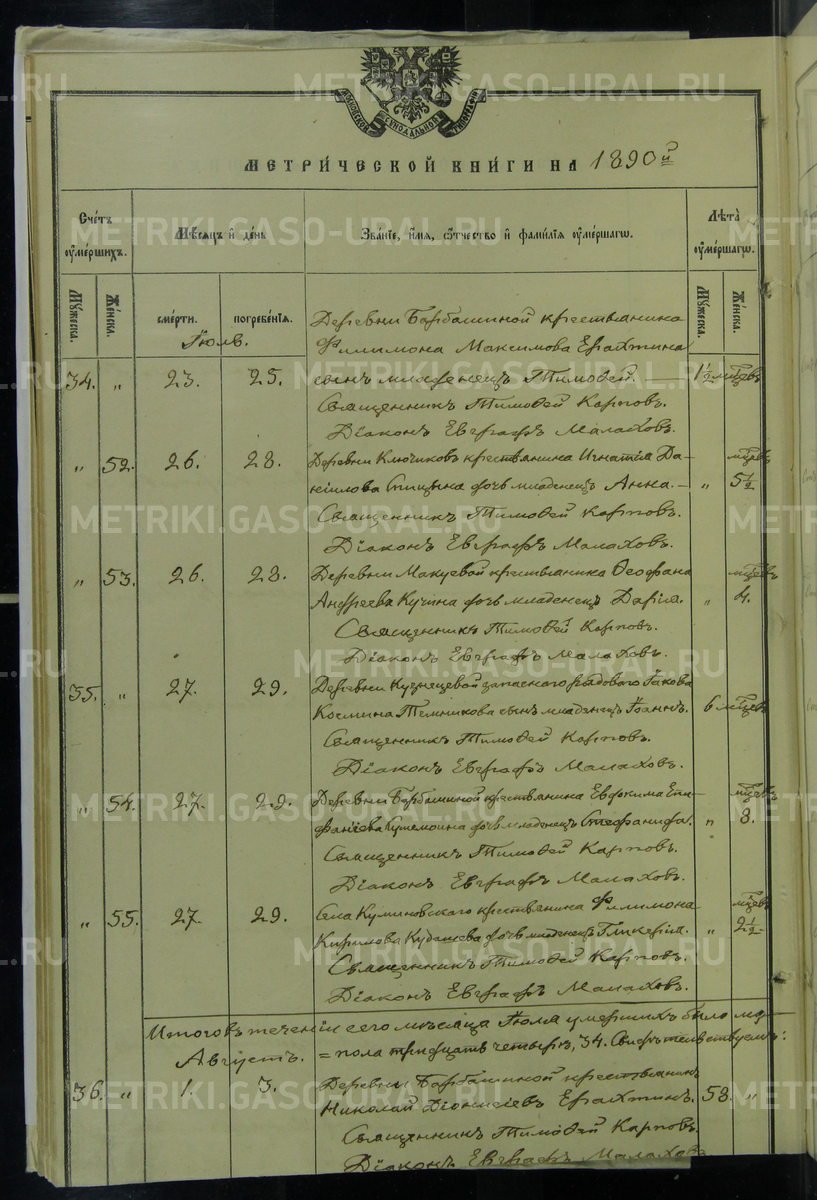 МОСКОВСКОЙ СѴНОДАЛЬНОЙ ТИПОГРАФІИ
МЕТРИ́ЧЕСКОЙ КНИ́ГИ НА 1890й
Сче́тъ ᲂумершихъ.
Мѣсяцъ и день
Зва́ніе, и́мя, ѻтчество и фами́лія ᲂумершагѡ.
Лѣта̀ ᲂумершагѡ.
Мꙋжеска.
Же́нска.
сме́рти.
погребе́нія.
Мꙋжеска.
Же́нска.
Іюль.
Деревни Барбашиной крестьянина
Филимона Максимова Ерахтина
34. „ 23. 25. сынъ младенецъ Тимофей. — 1½ мѣцевъ
Священникъ Тимоѳей Карповъ.
Діаконъ Евграфъ Малаховъ.
„ 52. 26. 28. Деревни Ключиковъ крестьянина Игнатія Да-
мѣцевъ
ніилова Спицына дочь младенецъ Анна. — „ 5½
Священникъ Тимоѳей Карповъ.
Діаконъ Евграфъ Малаховъ.
„ 53. 26. 28. Деревни Макуевой крестьянина Ѳеофана
мѣцевъ
Андреева Кучина дочь младенецъ Дарія. „ 4.
Священникъ Тимоѳей Карповъ.
Діаконъ Евграфъ Малаховъ.
35. „ 27. 29. Деревни Кузнецовой запаснаго рядоваго Іакова
Космина Темникова сынъ младенецъ Іоаннъ. 6 мѣцев
Священникъ Тимоѳей Карповъ.
Діаконъ Евграфъ Малаховъ.
„ 54. 27. 29. Деревни Барбашиной крестьянина Евфкима Епи-
мѣцевъ
фаніева дочь младенецъ Стефанида. „ 8.
Священникъ Тимоѳей Карповъ.
Діаконъ Евграфъ Малаховъ.
„ 55. 27. 29. Села Куминовскаго крестьянина Филимона
мѣцевъ
Кирилова Кубашева дочь младенецъ Гликерія. „ 2½
Священникъ Тимоѳей Карповъ.
Діаконъ Евграфъ Малаховъ.
Итого въ теченіи сего мѣсяца Іюля умершихъ было му-
Августъ. = пола тридцать четыре, 34. Свидѣтельствуемъ:
36. „ 1. 3. Деревни Барбашиной крестьянинъ
Николай Діонисіевъ Ерахтинъ. 58. „
Священникъ Тимоѳей Карповъ
Діаконъ Евграфъ Малаховъ
METRIKI.GASO-URAL.RU